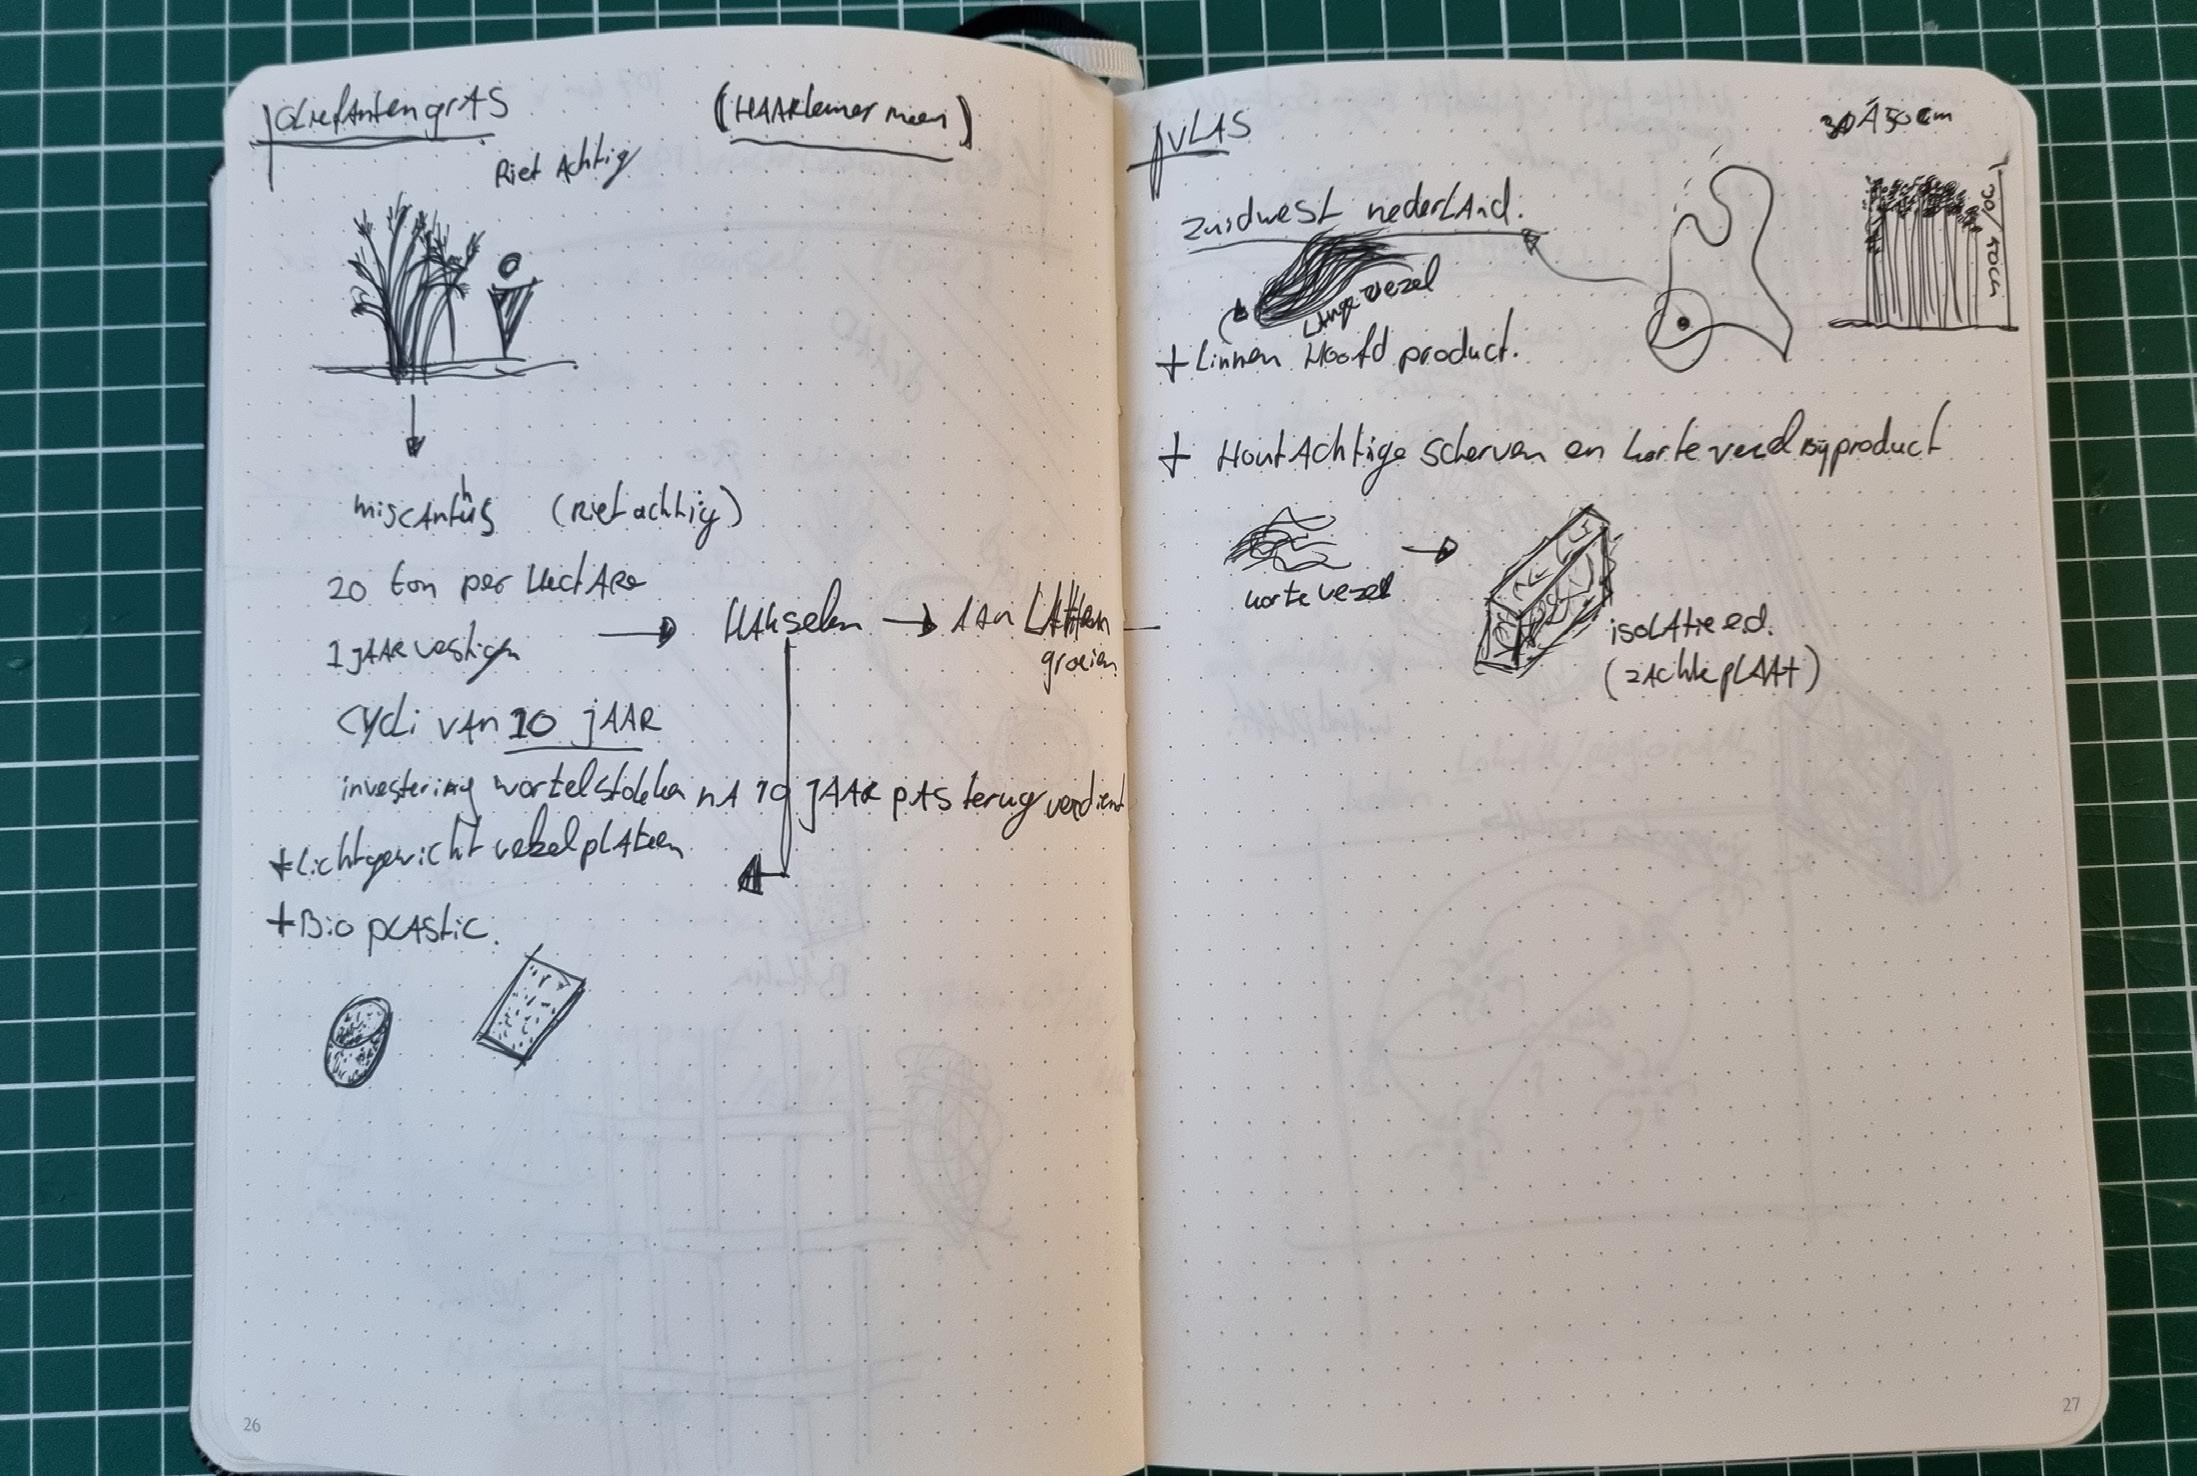 Oliefantengras
(Haarlemer meer)
Riet Achtig
miscanthus (Riet achtig)
20 ton per Hectare
1 jaar vestigen
Hakselen
groeien
Cycli van 10 jaar
investering wortelstokken na 10 jaar pas terug verdient
+ Lichtgewicht vezelplaten
+ Bio plastic.
26
VLAS
30 À 50 cm
Zuidwest nederland.
Lange vezel
+ Linnen Hoofd product.
+ Houtachtige scherven en korte vezel Bijproduct
korte vezel
isolatie e.d.
(zachte plaat)
27